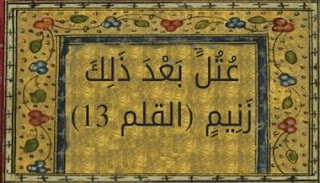 عُتُلٍّ بَعْدَ ذَلِكَ
زَنِيمٍ (القلم 13)